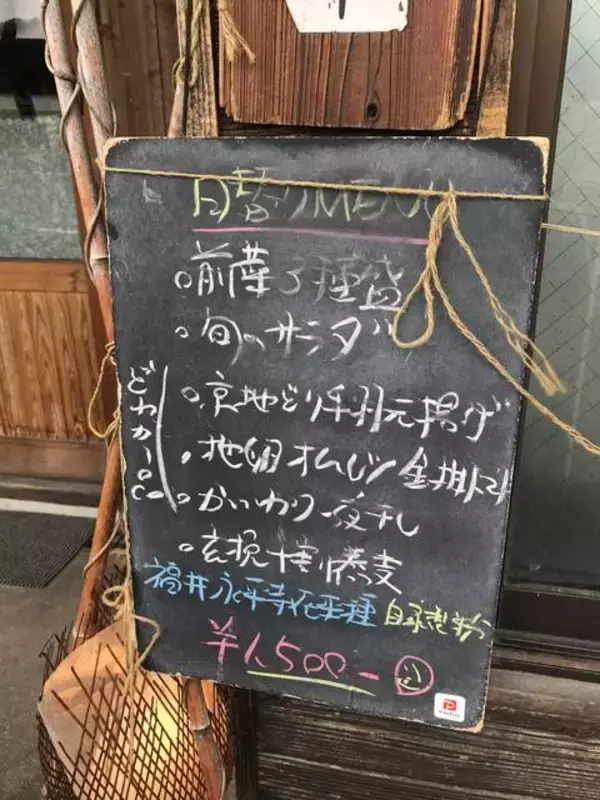 日替りMENU
・前菜3種盛
・旬のサラダ
どれか一つ
・京地どり手羽元揚げ
・地卵オムレツ 金掛トマト
・かいわり一夜干し
・玄挽十割蕎麦
福井永平寺在来種 自家製粉
¥1,500-